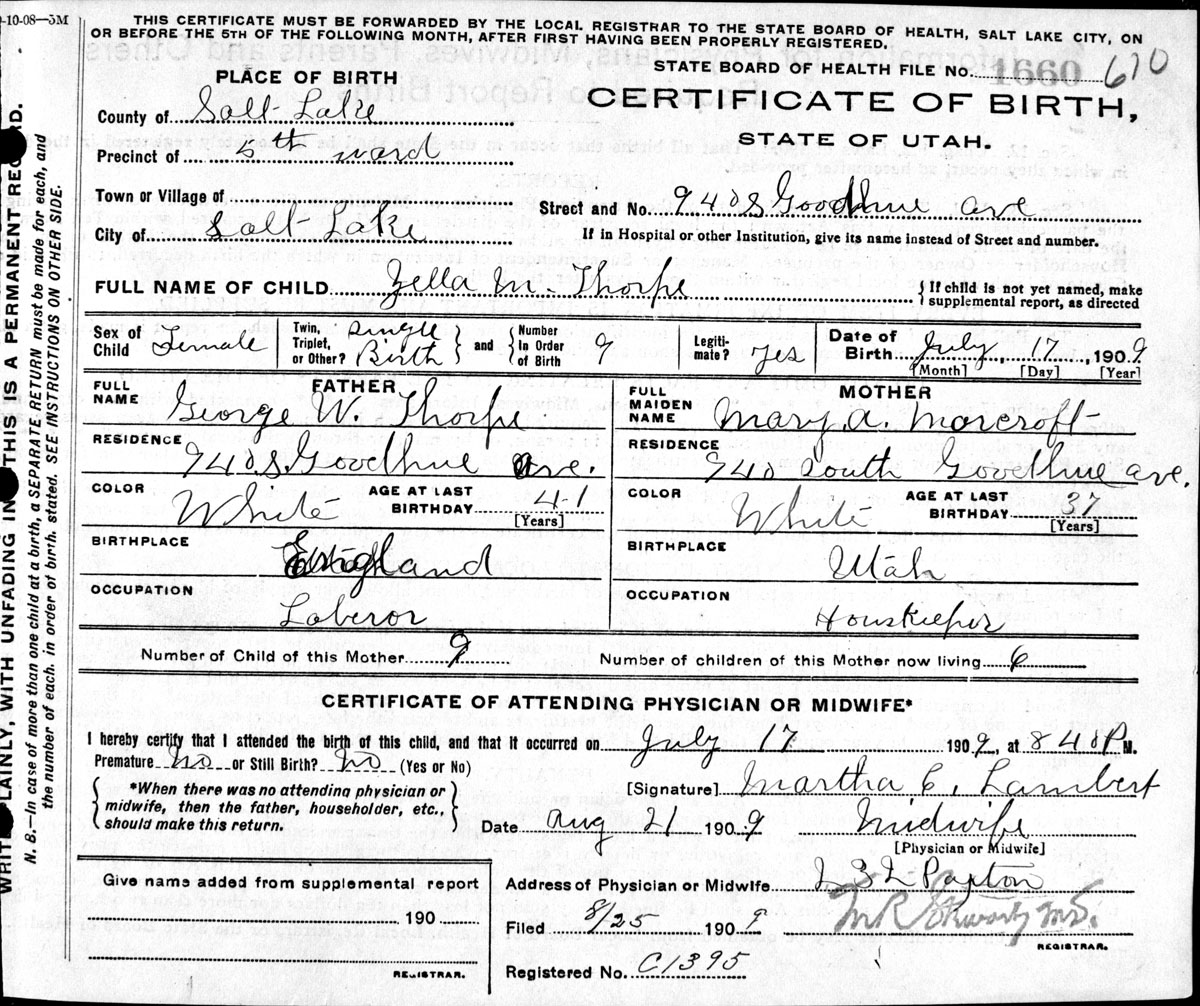 -10-08—5M
THIS CERTIFICATE MUST BE FORWARDED BY THE LOCAL REGISTRAR TO THE STATE BOARD OF HEALTH, SALT LAKE CITY, ON
OR BEFORE THE 5TH OF THE FOLLOWING MONTH, AFTER FIRST HAVING BEEN PROPERLY REGISTERED.
STATE BOARD OF HEALTH FILE No. 1660 610
CERTIFICATE OF BIRTH,
STATE OF UTAH.
PLACE OF BIRTH
County of Salt Lake
Precinct of 5th ward
Town or Village of
Street and No. 940 S Goodhue ave
City of Salt Lake
If in Hospital or other Institution, give its name instead of Street and number.
FULL NAME OF CHILD Zella M. Thorpe
{ If child is not yet named, make supplemental report, as directed
Sex of Child Female
Twin, Triplet, or Other? Single Birth } and { Number In Order of Birth 9
Legitimate? Yes
Date of Birth July, 17, 1909
[Month] [Day] [Year]
FATHER
FULL NAME George W. Thorpe
RESIDENCE 940 S. Goodhue ave.
COLOR White
AGE AT LAST BIRTHDAY 41 [Years]
BIRTHPLACE England
OCCUPATION Laberor
MOTHER
FULL MAIDEN NAME Mary A. Morcroft
RESIDENCE 940 South Goodhue ave.
COLOR White
AGE AT LAST BIRTHDAY 37 [Years]
BIRTHPLACE Utah
OCCUPATION Houskeeper
Number of Child of this Mother 9
Number of children of this Mother now living 6
CERTIFICATE OF ATTENDING PHYSICIAN OR MIDWIFE*
I hereby certify that I attended the birth of this child, and that it occurred on July 17 1909, at 8 40 P M.
Premature No or Still Birth? No (Yes or No)
{ *When there was no attending physician or midwife, then the father, householder, etc., should make this return. }
[Signature] Martha E. Lambert
Date Aug 21 1909
Midwife
[Physician or Midwife]
Address of Physician or Midwife Paxton
Give name added from supplemental report
190
REGISTRAR.
Filed 8/25 1909
REGISTRAR.
Registered No. C1395
WRITE PLAINLY, WITH UNFADING INK THIS IS A PERMANENT RECORD.
N. B.—In case of more than one child at a birth, a SEPARATE RETURN must be made for each, and
the number of each, in order of birth, stated. SEE INSTRUCTIONS ON OTHER SIDE.